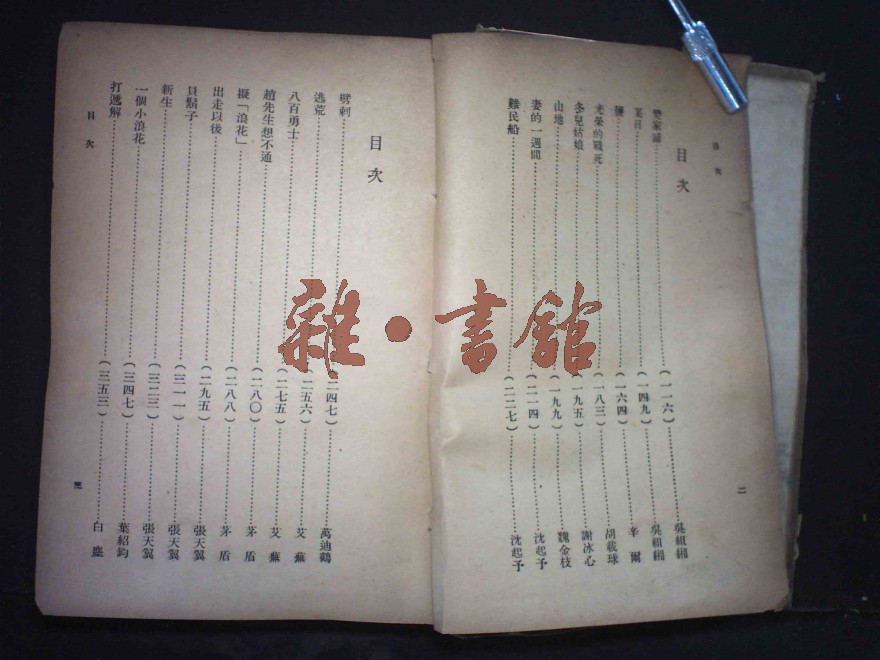 目次
二
目次
樊家鋪……(一一六)……吳組緗
某日……(一四九)……吳組緗
鹽……(一六四)……辛爾
光榮的戰死……(一八三)……胡載球
冬兒姑娘……一九五)……謝冰心
山地……一九九)……魏金枝
妻的一週間……(二一四)……沈起予
難民船……(二二七)……沈起予
目次
劈刺……二四七)……萬迪鶴
逃荒……二五六)……艾蕪
八百勇士……二七五)……艾蕪
趙先生想不通……(二八〇)……茅盾
擬「浪花」……(二八八)……茅盾
出走以後……(二九五)……張天翼
子……(三一一)……張天翼
新生……(三二三)……張天翼
一個小浪花……(三四七)……葉紹鈞
打遞解……(三五三)……白塵
目次
三
雜·書館